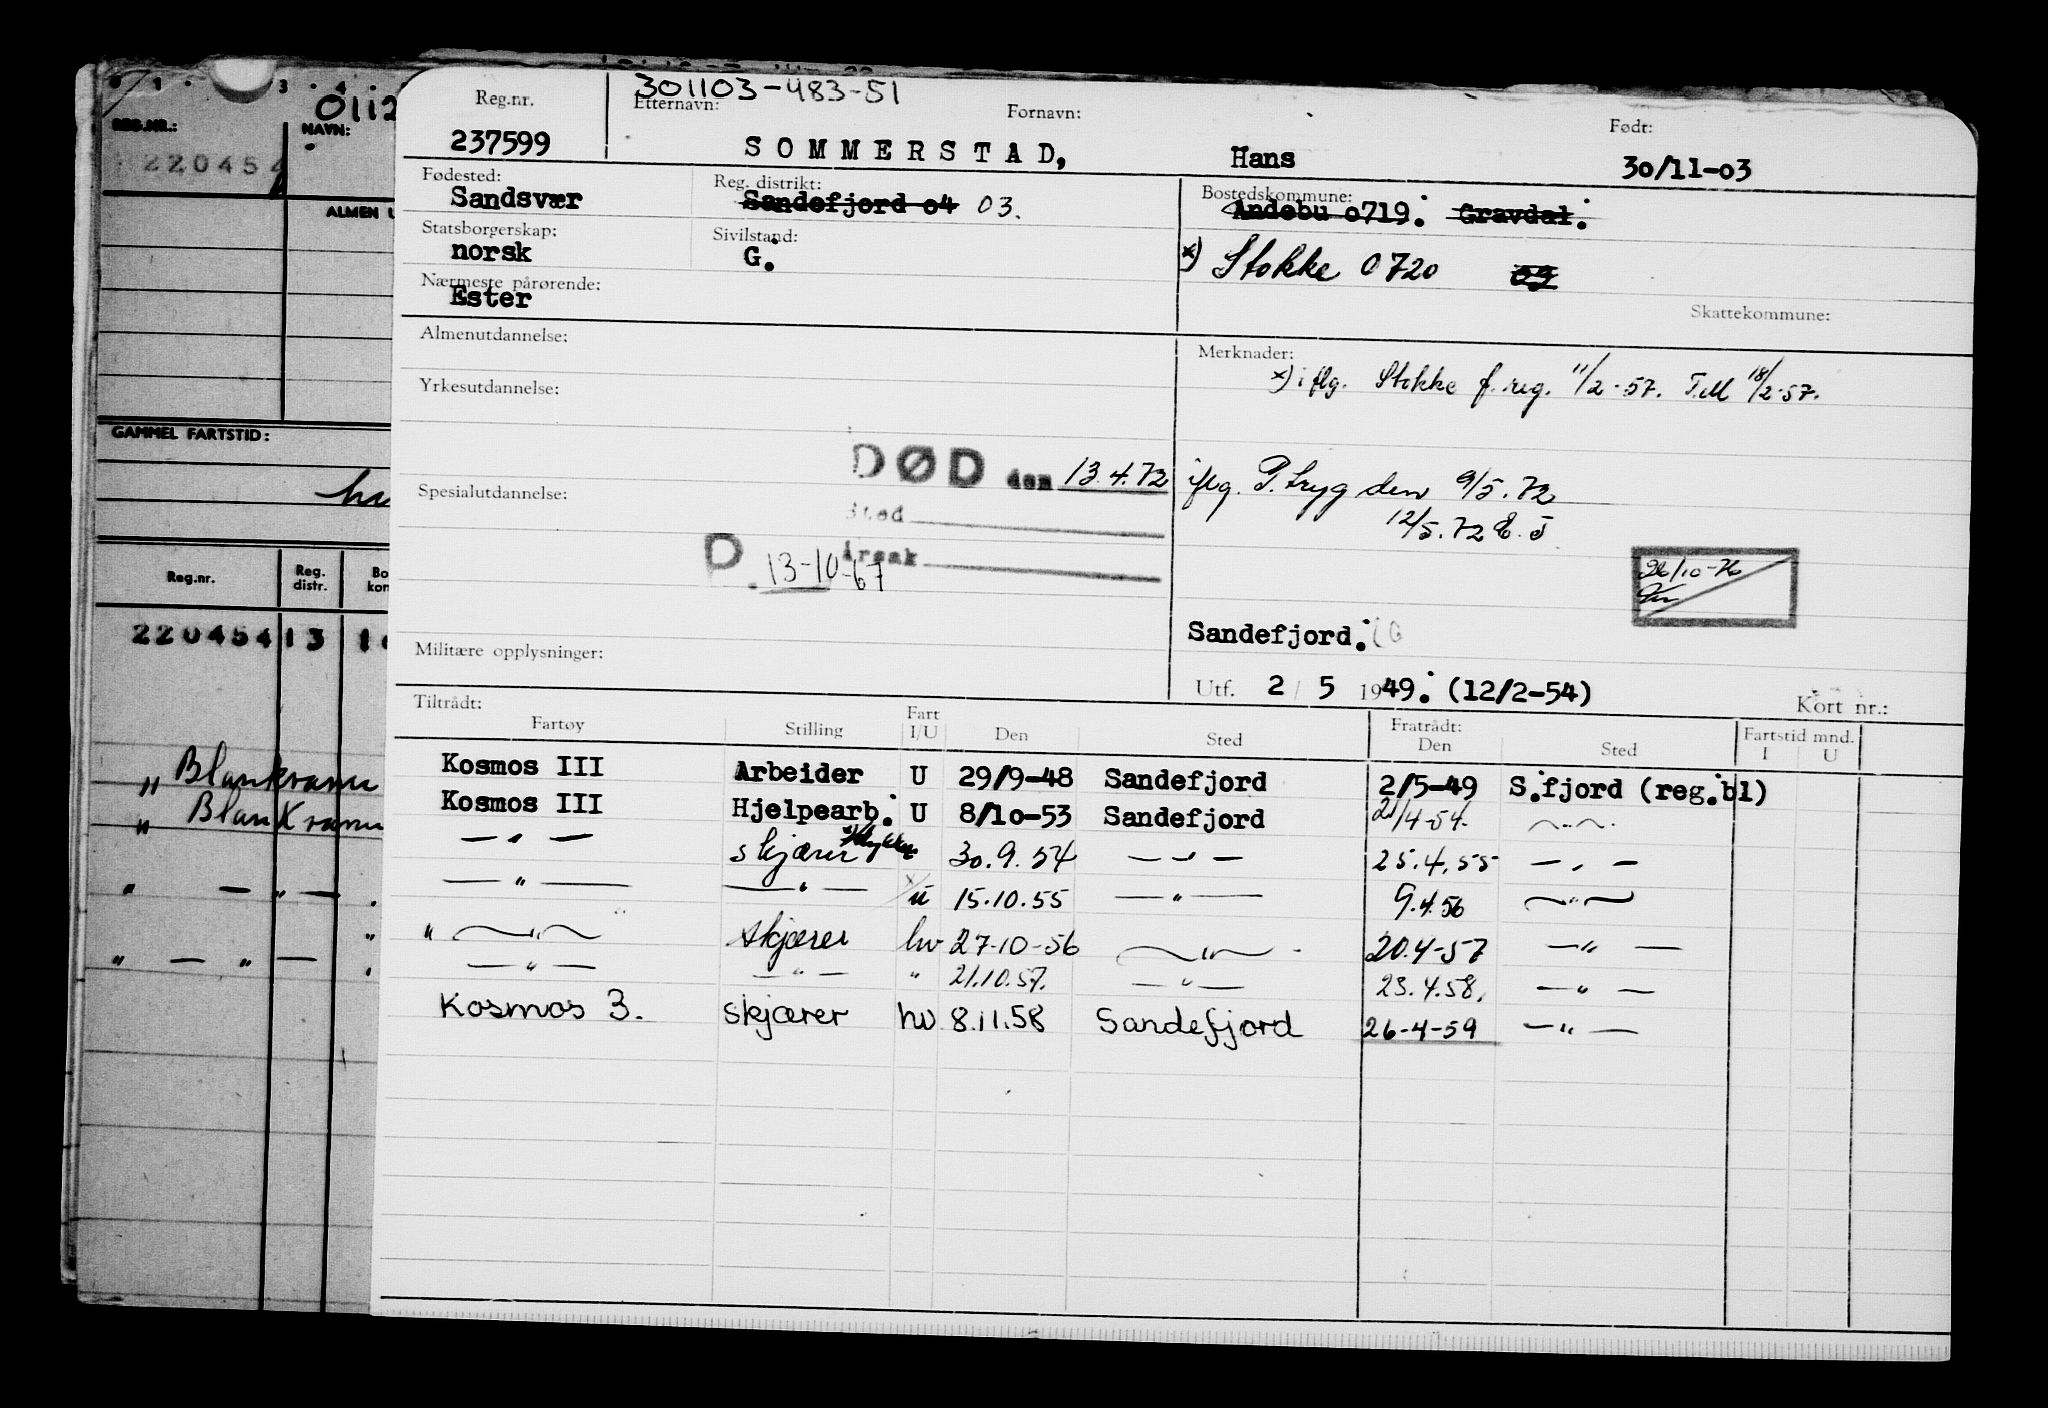 301103-483-51
Reg.nr. Etternavn: Fornavn: Født:
237599 SOMMERSTAD, Hans 30/11-03
Fødested: Reg. distrikt: Bostedskommune:
Sandsvær Sandefjord 04 03. Andebu 0719. Gravdal.
Statsborgerskap: Sivilstand:
norsk G. x) Stokke 0720 09
Nærmeste pårørende:
Ester
Skattekommune:
Almenutdannelse: Merknader:
x) iflg. Stokke f.reg. 11/2-57. 18/2-57.
Yrkesutdannelse:
DØD den 13.4.72 iflg. P.tryg den 9/5.72
Spesialutdannelse:
Sted 12/5.72 E.J
Årsak
D. 13-10-67
26/10-76
Sandefjord.
Militære opplysninger:
Utf. 2/5 1949. (12/2-54) Kort nr.:
Tiltrådt: Fratrådt: Fartstid mnd.
Fartøy Stilling Fart I/U Den Sted Den Sted I U
Kosmos III Arbeider U 29/9-48 Sandefjord 2/5-49 S.fjord (reg.bl)
Kosmos III Hjelpearb. U 8/10-53 Sandefjord 21/4-54. —"—
—"— skjærer 30.9.54 —"— 25.4.55 —"—
—"— —"— u 15.10.55 —"— 9.4.56 —"—
" —"— skjærer hv 27-10-56 —"— 20.4-57 —"—
—"— —"— " 21.10.57. —"— 23.4.58. —"—
Kosmos 3. skjærer hv 8.11.58 Sandefjord 26-4-59 —"—
1 3 4
0112
REG.NR.: NAVN:
220454
ALMEN U
GAMMEL FARTSTID:
ha
Reg.nr. Reg. distr. Bo kon
220454 13 1
" Blankvann
" Blankvann
" — " —
" — " —